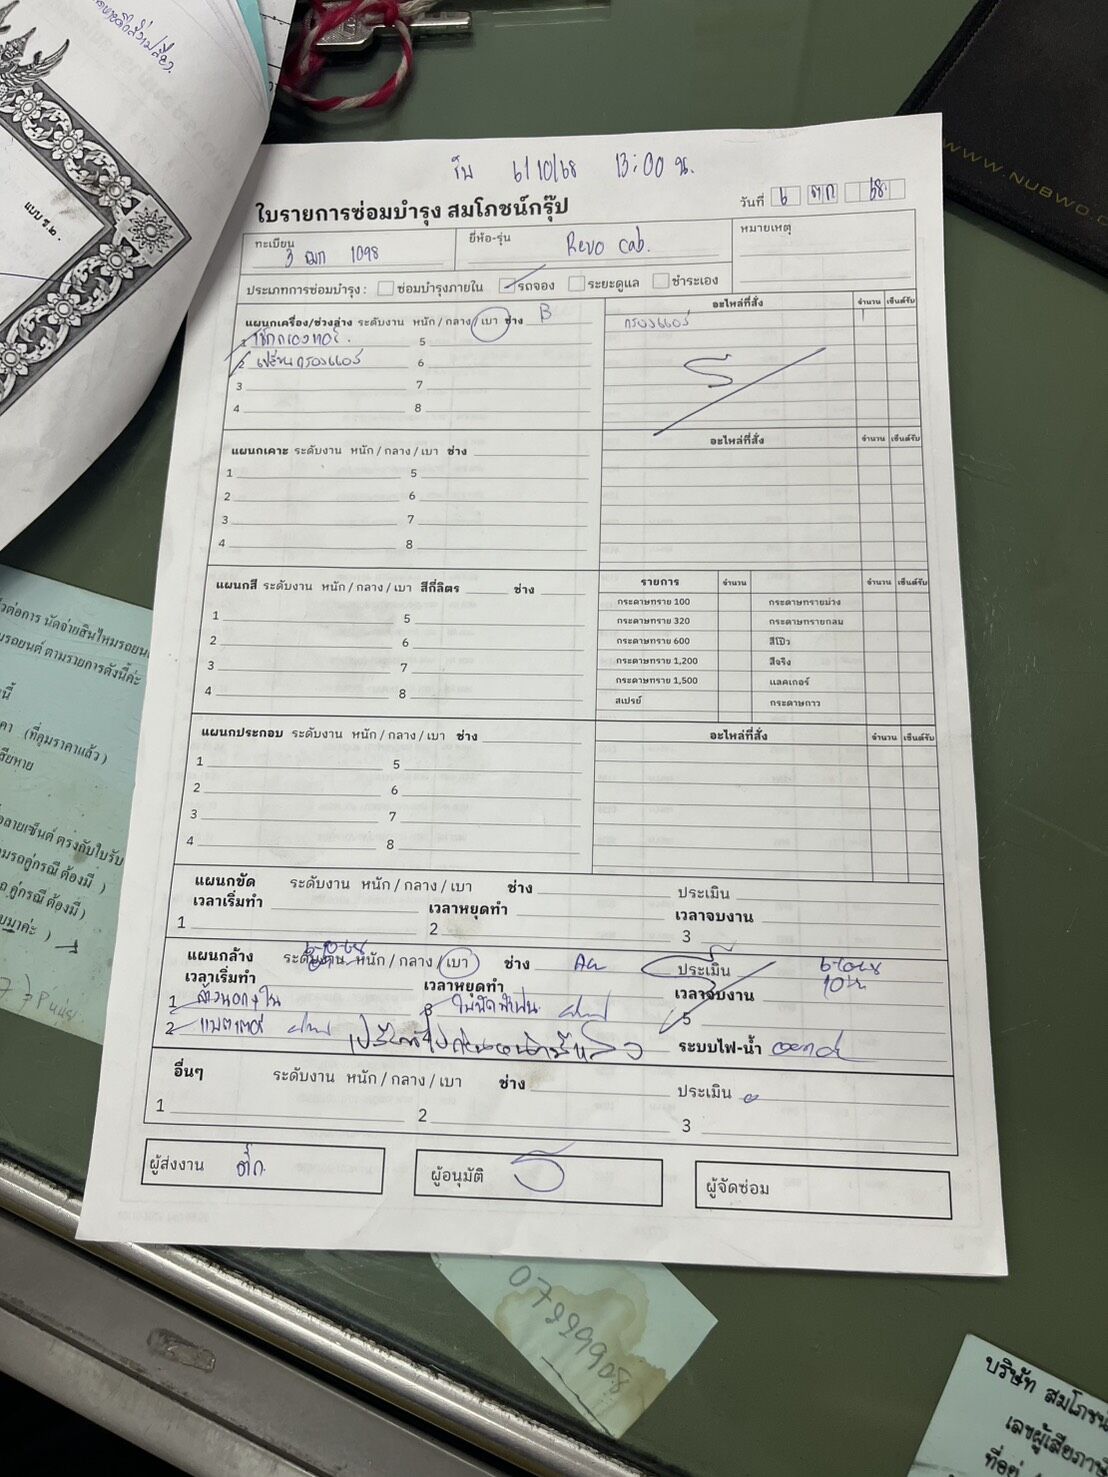 รับ 6/10/68 13:00 น.
ใบรายการซ่อมบำรุง สมโภชน์กรุ๊ป
วันที่ 6 ตค 68
ทะเบียน 3 ฒก 1098
ยี่ห้อ-รุ่น Revo cab.
หมายเหตุ
ประเภทการซ่อมบำรุง : ซ่อมบำรุงภายใน รถจอง ระยะดูแล ชำระเอง
แผนกเครื่อง/ช่วงล่าง ระดับงาน หนัก / กลาง / เบา ช่าง B
อะไหล่ที่สั่ง จำนวน เซ็นต์รับ
กรองแอร์ 1
1 5
2 เปลี่ยนกรองแอร์ 6
3 7
4 8
แผนกเคาะ ระดับงาน หนัก / กลาง / เบา ช่าง
อะไหล่ที่สั่ง จำนวน เซ็นต์รับ
1 5
2 6
3 7
4 8
แผนกสี ระดับงาน หนัก / กลาง / เบา สีกี่ลิตร ช่าง
รายการ จำนวน จำนวน เซ็นต์รับ
กระดาษทราย 100 กระดาษทรายม่วง
กระดาษทราย 320 กระดาษทรายกลม
กระดาษทราย 600 สีโป๊ว
กระดาษทราย 1,200 สีจริง
กระดาษทราย 1,500 แลคเกอร์
สเปรย์ กระดาษกาว
1 5
2 6
3 7
4 8
แผนกประกอบ ระดับงาน หนัก / กลาง / เบา ช่าง
อะไหล่ที่สั่ง จำนวน เซ็นต์รับ
1 5
2 6
3 7
4 8
แผนกขัด ระดับงาน หนัก / กลาง / เบา ช่าง ประเมิน
เวลาเริ่มทำ เวลาหยุดทำ เวลาจบงาน
1 2 3
แผนกล้าง ระดับงาน หนัก / กลาง / เบา ช่าง ประเมิน
เวลาเริ่มทำ เวลาหยุดทำ เวลาจบงาน
1 ล้างนอก+ใน 3 ใบปัดน้ำฝน 5
2 แบตเตอรี่
ระบบไฟ-น้ำ
อื่นๆ ระดับงาน หนัก / กลาง / เบา ช่าง ประเมิน
1 2 3
ผู้ส่งงาน ตั๊ก
ผู้อนุมัติ
ผู้จัดซ่อม
แบบ ช.๒.
WWW.NUBWO.C
ต่อการ นัดจ่ายสินไหมรถยน
มรถยนต์ ตามรายการดังนี้ค่ะ
(ที่คุมราคาแล้ว )
สียหาย
ลายเซ็นต์ ตรงกับใบรับ
มรถคู่กรณี ต้องมี )
คู่กรณี ต้องมี)
07899908
บริษัท สมโภชน์
เลขผู้เสียภาษี
ที่อยู่